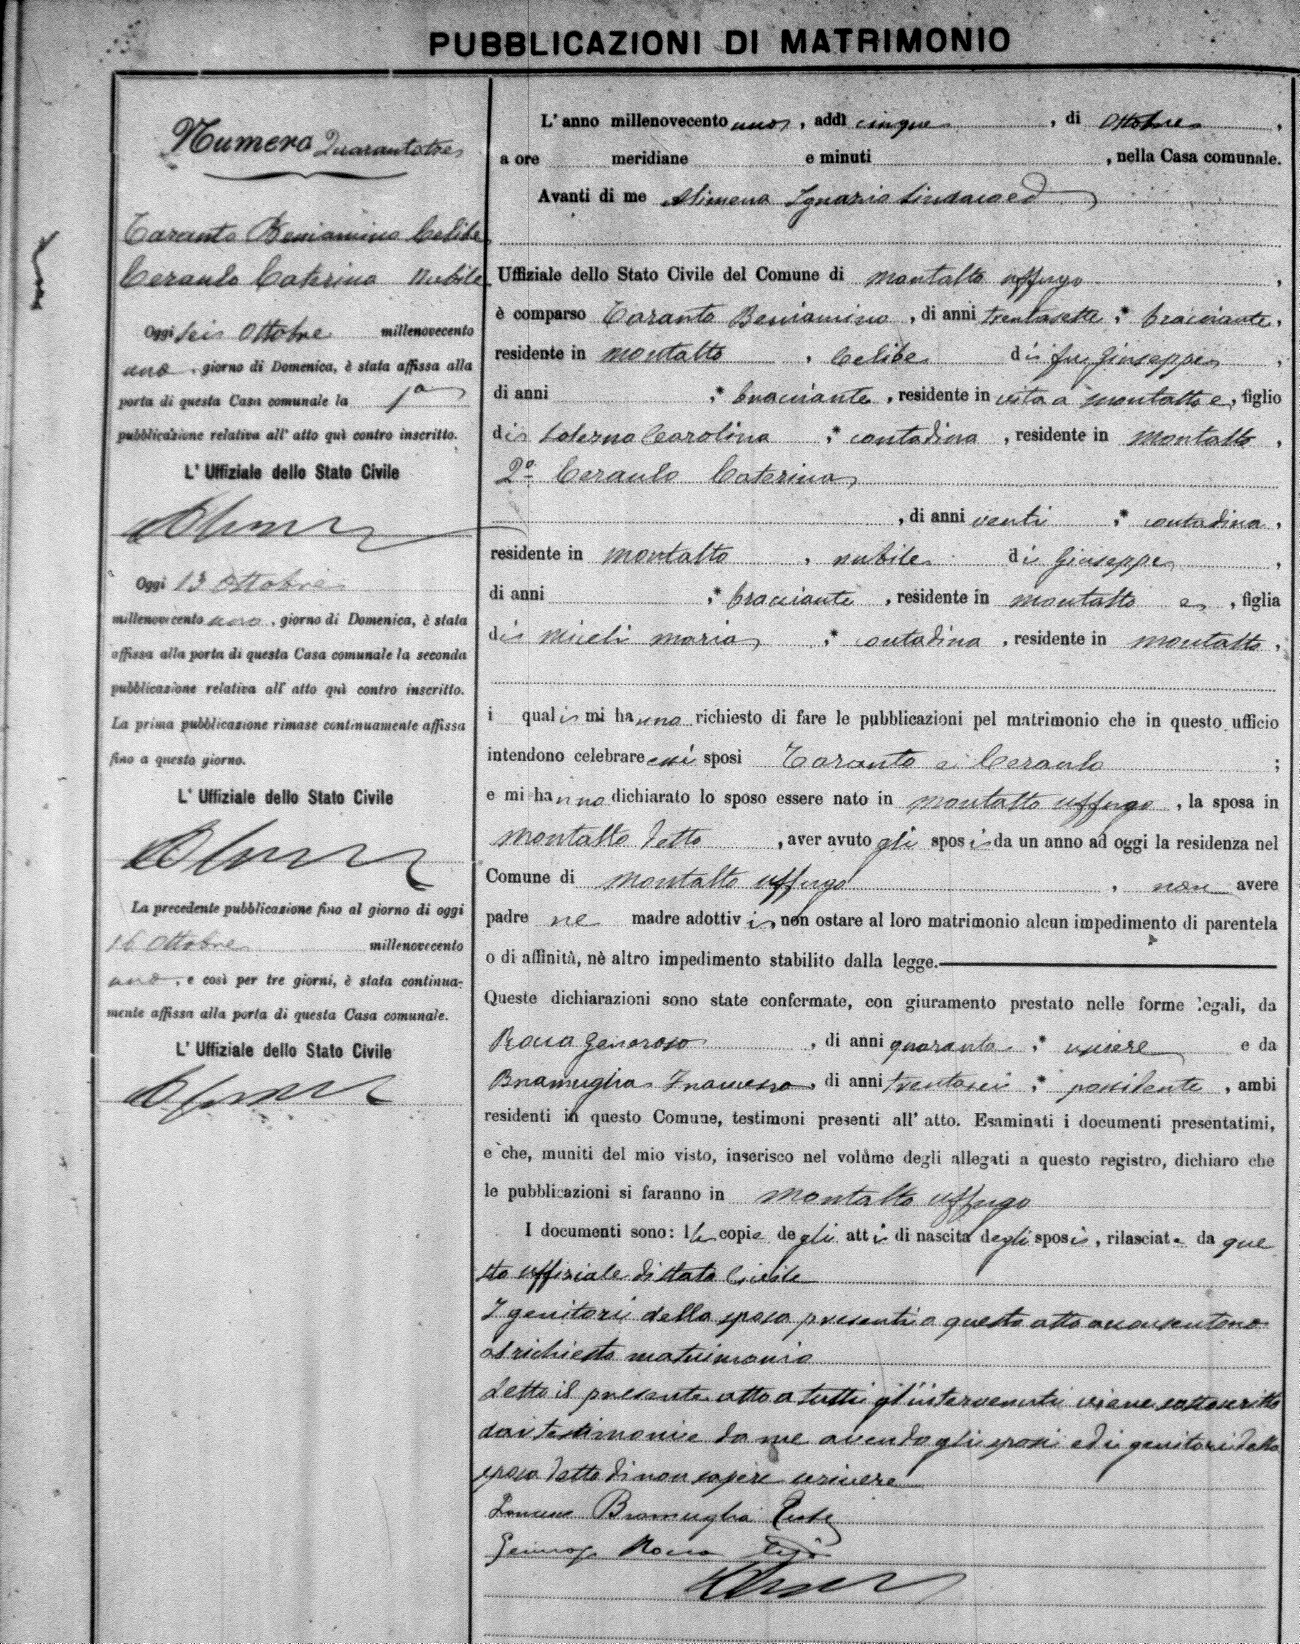 PUBBLICAZIONI DI MATRIMONIO
Numero Quarantatre
Taranto Beniamino Celibe
Ceraulo Caterina Nubile
Oggi sei Ottobre millenovecento
uno, giorno di Domenica, è stata affissa alla
porta di questa Casa comunale la 1ª
pubblicazione relativa all' atto quì contro inscritto.
L' Uffiziale dello Stato Civile
Oggi 13 Ottobre
millenovecento uno, giorno di Domenica, è stata
affissa alla porta di questa Casa comunale la seconda
pubblicazione relativa all' atto quì contro inscritto.
La prima pubblicazione rimase continuamente affissa
fino a questo giorno.
L' Uffiziale dello Stato Civile
La precedente pubblicazione fino al giorno di oggi
16 Ottobre millenovecento
uno, e così per tre giorni, è stata continua-
mente affissa alla porta di questa Casa comunale.
L' Uffiziale dello Stato Civile
L' anno millenovecento uno, addì cinque, di Ottobre,
a ore meridiane e minuti , nella Casa comunale.
Avanti di me Alimena Ignazio Sindaco ed
Uffiziale dello Stato Civile del Comune di Montalto Uffugo,
è comparso Taranto Beniamino, di anni trentasette, * bracciante,
residente in Montalto, Celibe di fu Giuseppe,
di anni , * bracciante, residente in vita a Montalto e, figlio
di Salerno Carolina, * contadina, residente in Montalto,
2º Ceraulo Caterina
, di anni venti, * contadina,
residente in Montalto, nubile di Giuseppe,
di anni , * bracciante, residente in Montalto e, figlia
di Miceli Maria, * contadina, residente in Montalto,
i quali mi hanno richiesto di fare le pubblicazioni pel matrimonio che in questo ufficio
intendono celebrare essi sposi Taranto e Ceraulo ;
e mi hanno dichiarato lo sposo essere nato in Montalto Uffugo, la sposa in
Montalto detto, aver avuto gli sposi da un anno ad oggi la residenza nel
Comune di Montalto Uffugo, non avere
padre ne madre adottivi, non ostare al loro matrimonio alcun impedimento di parentela
o di affinità, nè altro impedimento stabilito dalla legge.
Queste dichiarazioni sono state confermate, con giuramento prestato nelle forme legali, da
Rocca Generoso, di anni quaranta, * usciere e da
Bramuglia Francesco, di anni trentasei, * possidente, ambi
residenti in questo Comune, testimoni presenti all' atto. Esaminati i documenti presentatimi,
e che, muniti del mio visto, inserisco nel volume degli allegati a questo registro, dichiaro che
le pubblicazioni si faranno in Montalto Uffugo
I documenti sono: le copie degli atti di nascita degli sposi, rilasciate da que
sto uffiziale di stato Civile
I genitori della sposa presenti a questo atto acconsentono
al richiesto matrimonio
Letto il presente atto a tutti gl'intervenuti viene sottoscritto
dai testimoni e da me avendo gli sposi ed i genitori della
sposa detto di non sapere scrivere
Bramuglia Teste
Rocca